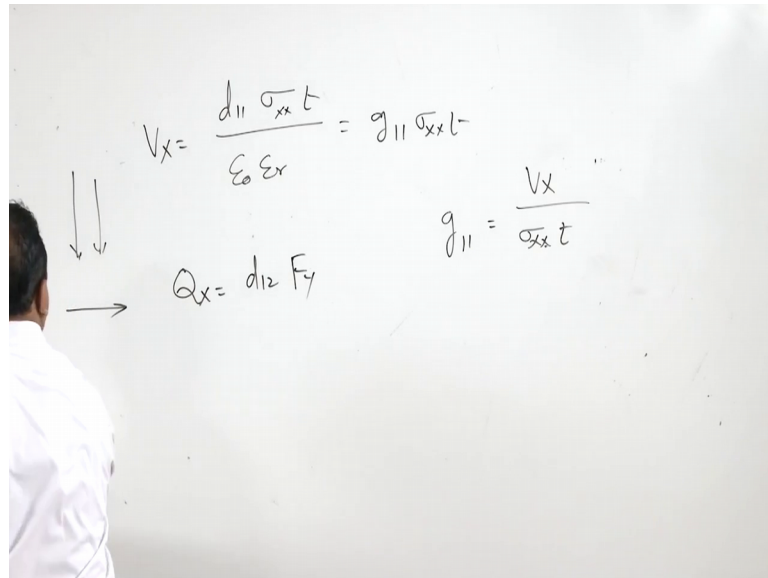 Vx = d11 σxx t / ε0 εr = g11 σxx t
g11 = Vx / σxx t
Qx = d12 Fy